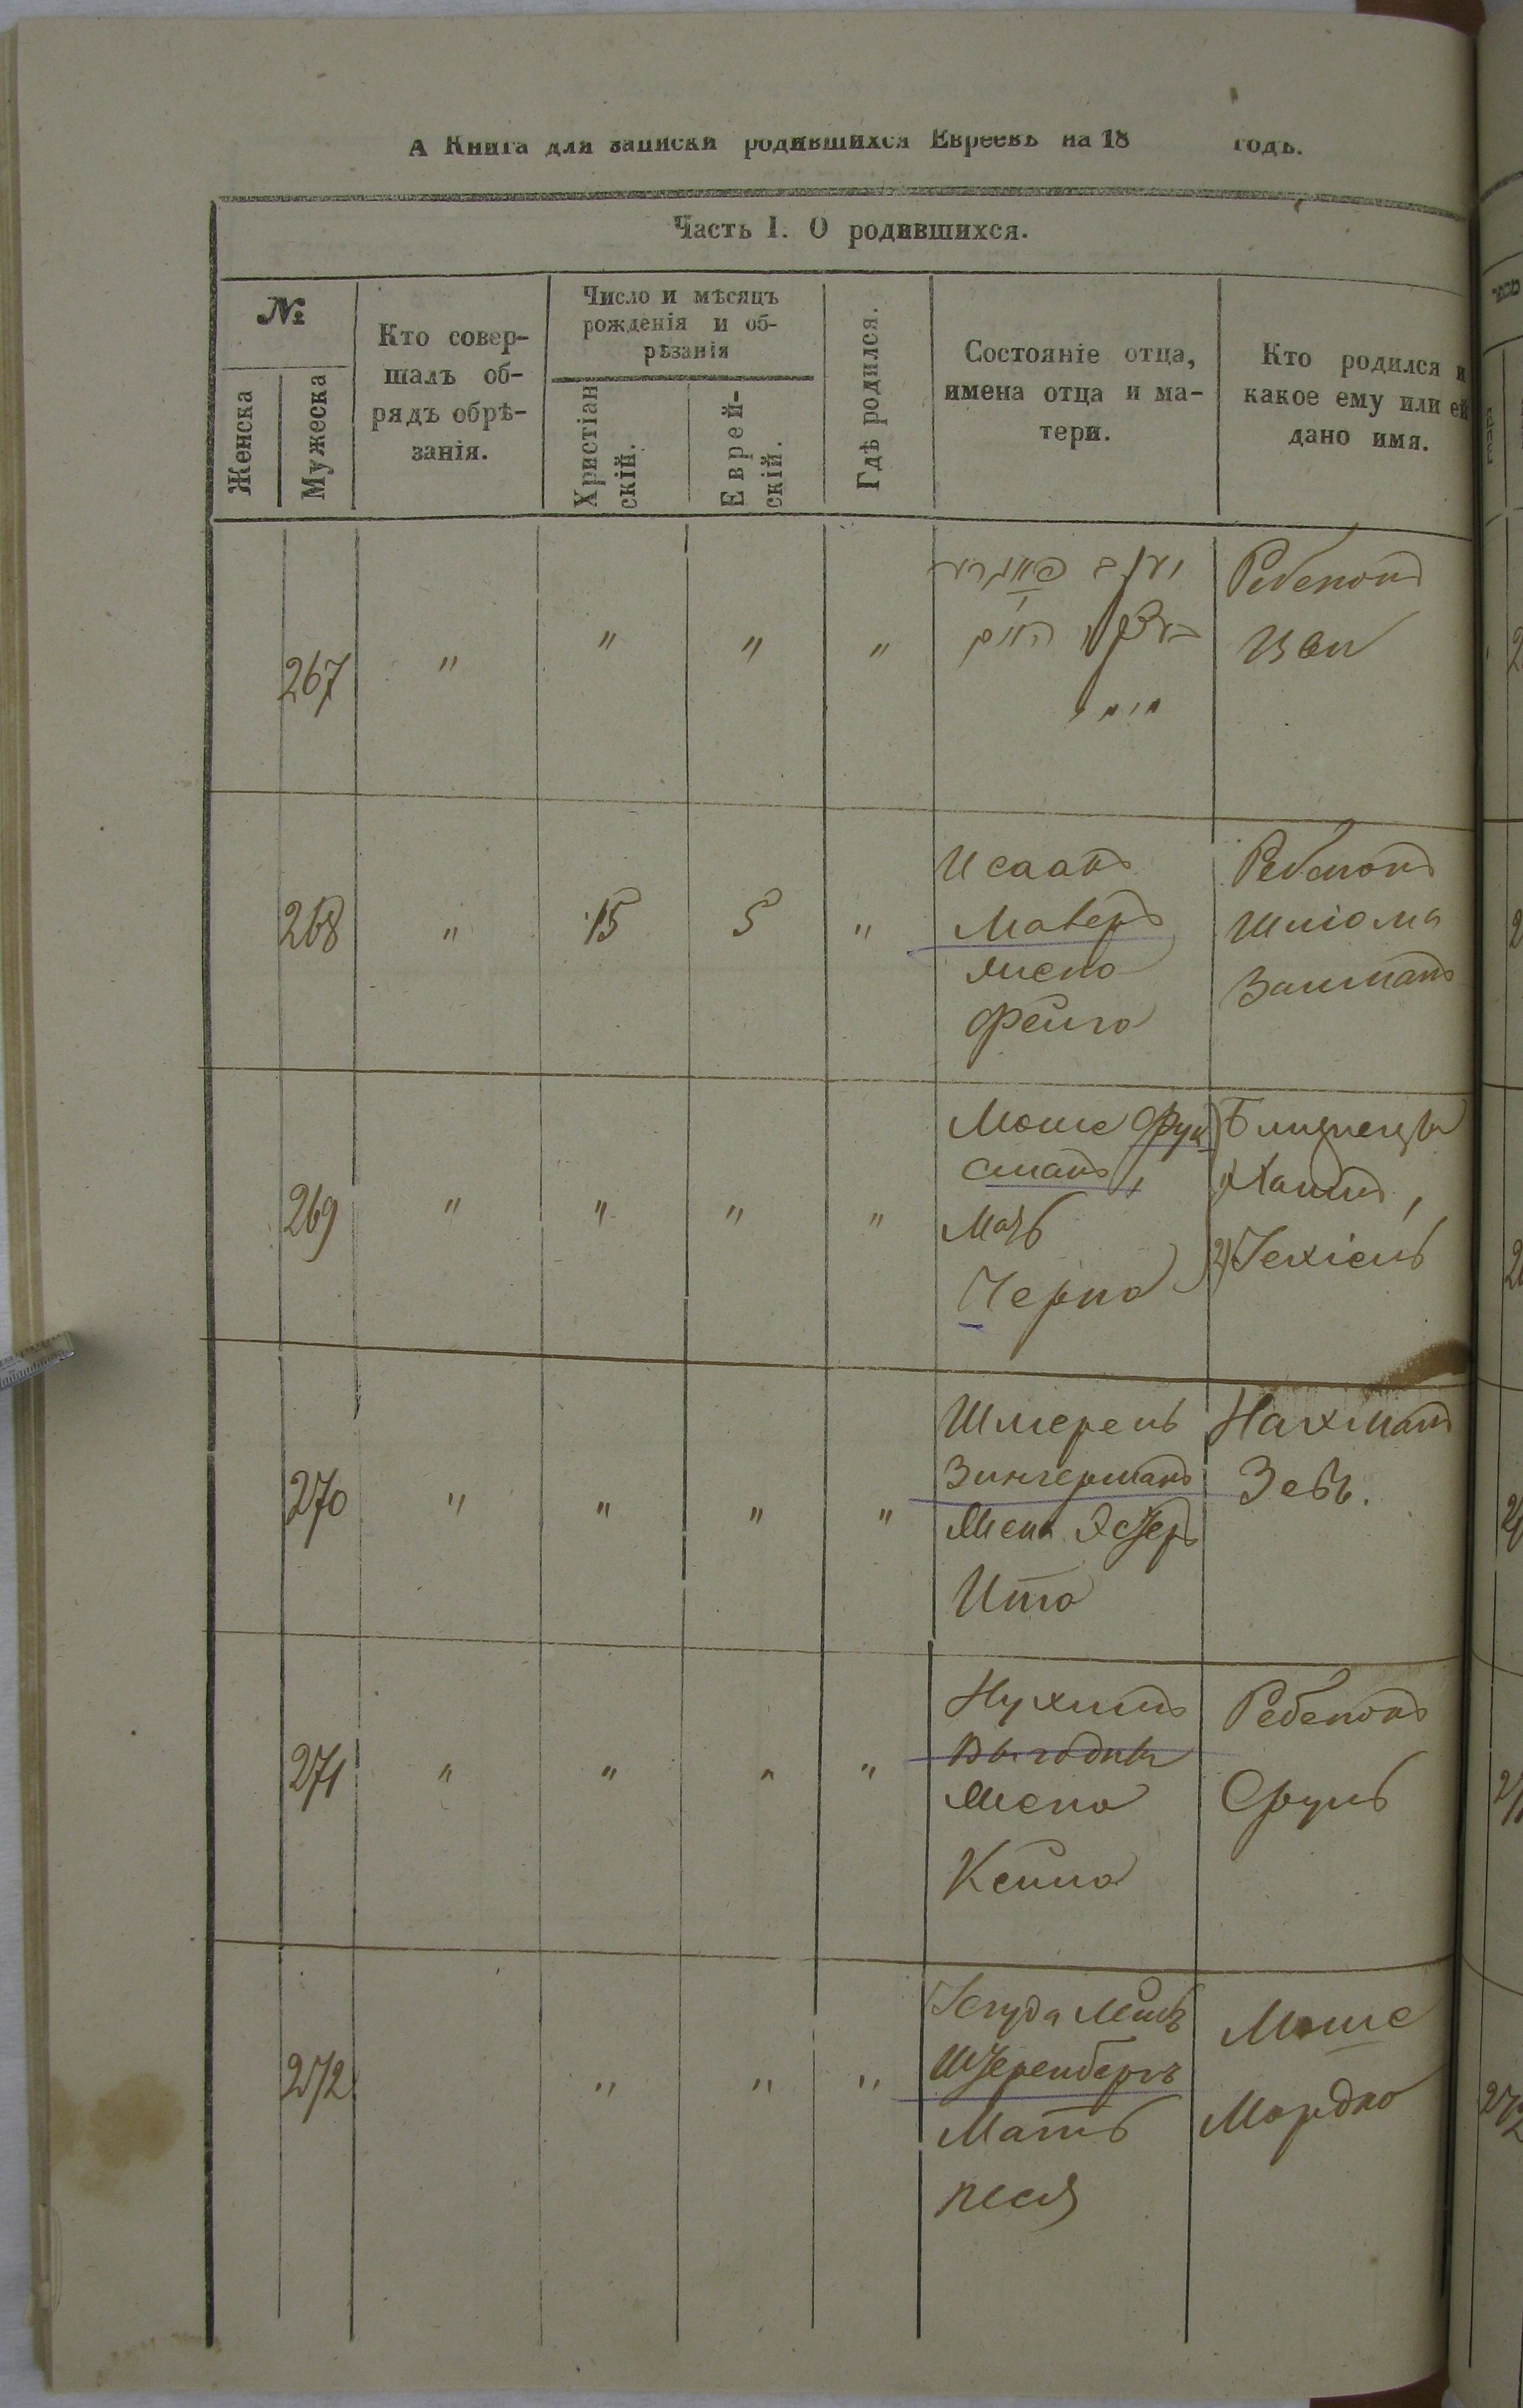 А Книга для записки родившихся Евреевъ на 18 годъ.
Часть I. О родившихся.
№
Женска
Мужеска
Кто совер-
шалъ об-
рядъ обрѣ-
занія.
Число и мѣсяцъ
рожденія и об-
рѣзанія
Христіан
скій.
Еврей-
скій.
Гдѣ родился.
Состояніе отца,
имена отца и ма-
тери.
Кто родился и
какое ему или ей
дано имя.
267 " " " "
Ребенокъ
268 " 15 5 "
Исаакъ
Маверъ
жена
Фейга
Ребенокъ
Шліома
Залманъ
269 " " " "
Моше Фук
сманъ,
Мать
Черна
Близнецы
1) Хаимъ,
2) Іехіель
270 " " " "
Шмерель
Зингерманъ
Жена Эстеръ
Ита
Нахманъ
Зевъ.
271 " " " "
Нухимъ
Выгодны
Жена
Кейла
Ребенокъ
Сруль
272 " " "
Іегуда Лейбъ
Штеренбергъ
Мать
песя
Моше
Мордко